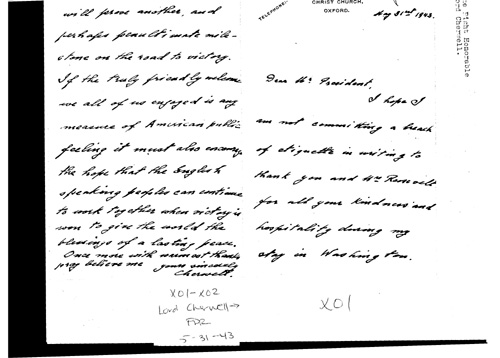 will prove another, and
perhaps penultimate mile-
stone on the road to victory.
If the truly friendly welcome
we all of us enjoyed is any
measure of American public
feeling it must also encourage
the hope that the English
speaking peoples can continue
to work together when victory is
won to give the world the
blessings of a lasting peace.
Once more with warmest thanks
pray believe me yours sincerely
Cherwell.
X01-X02
Lord Cherwell→
FDR
5-31-43
TELEPHONE
CHRIST CHURCH,
OXFORD.
May 31st 1943.
Dear Mr. President,
I hope I
am not committing a breach
of etiquette in writing to
thank you and Mrs Roosevelt
for all your kindness and
hospitality during my
stay in Washington.
X01
e Right Honorable
ord Cherwell.